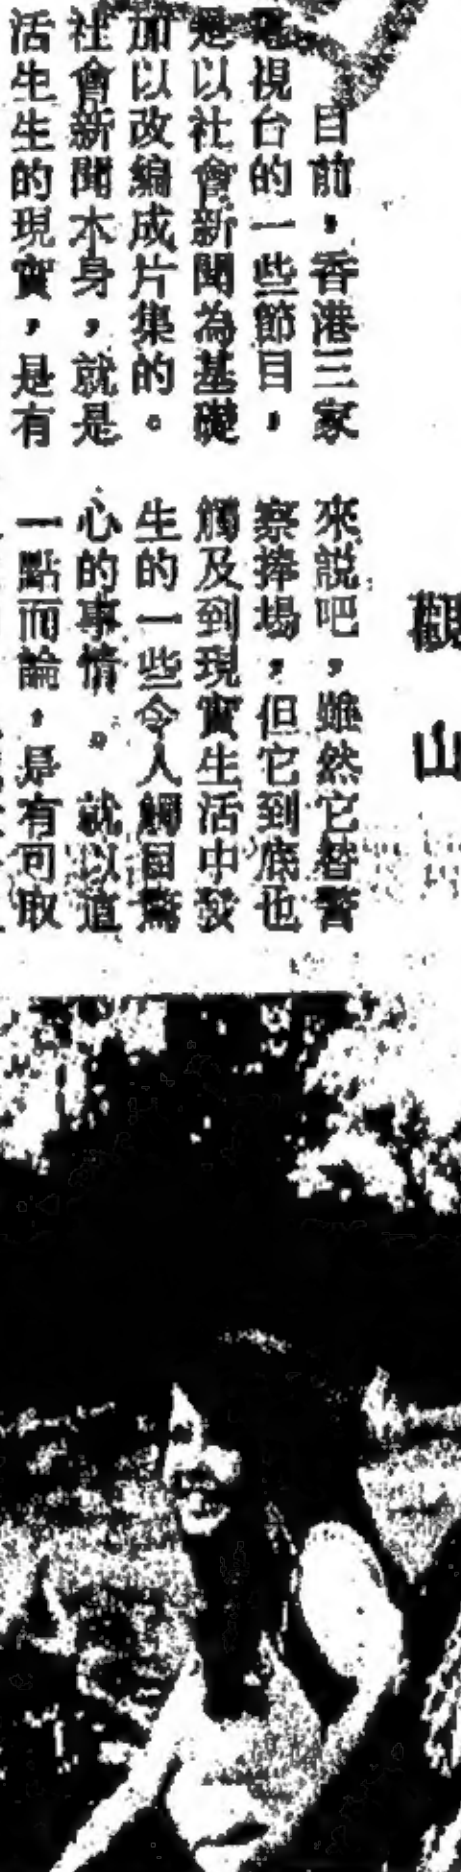 觀山
目前，香港三家
電視台的一些節目，
是以社會新聞為基礎
加以改編成片集的。
社會新聞本身，就是
活生生的現實，是有
來説吧，雖然它替警
察捧場，但它到底也
觸及到現實生活中發
生的一些令人觸目驚
心的事情。就以這
一點而論，是有可取